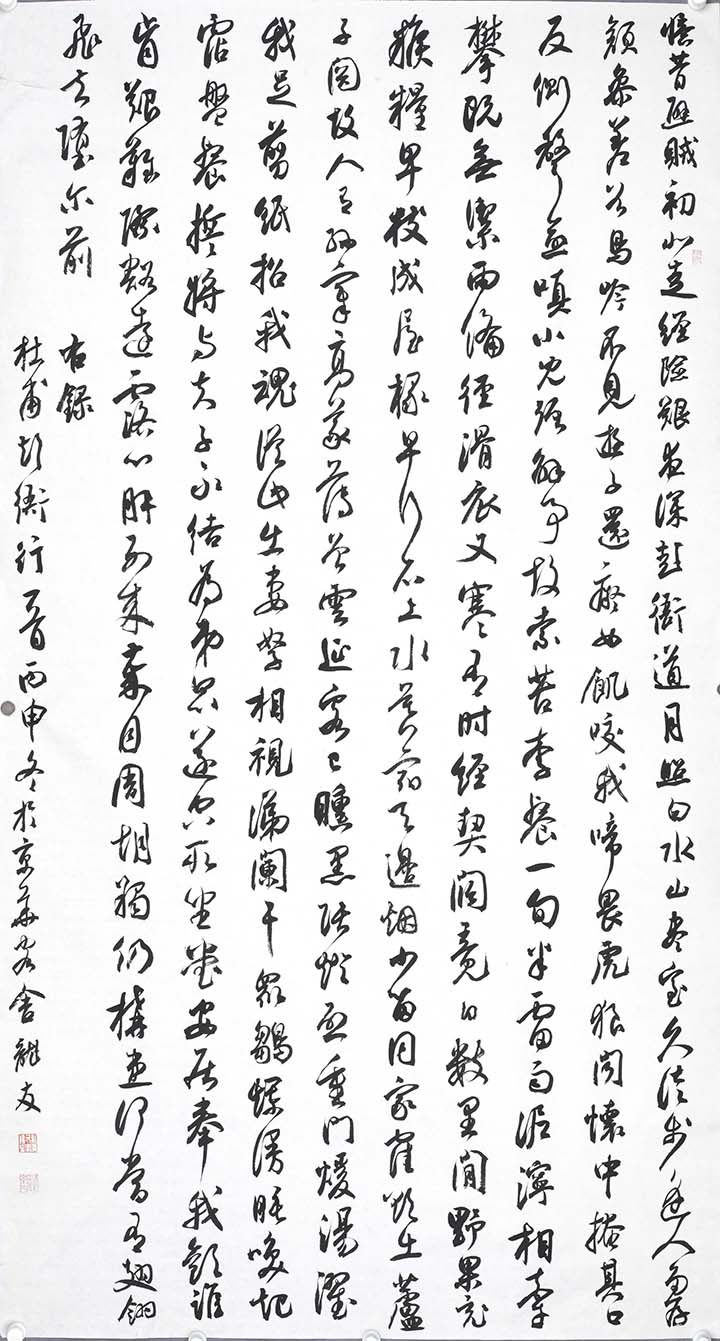 憶昔避賊初北走經險艱夜深彭衙道月照白水山盡室久徒步逢人多厚
顏參差谷鳥吟不見遊子還癡女飢咬我啼畏虎狼聞懷中掩其口
反側聲愈嗔小兒強解事故索苦李餐一旬半雷雨泥濘相牽
攀既無禦雨備徑滑衣又寒有时經契闊竟日數里間野果充
猴糧卑枝成屋椽早行石上水暮宿天邊烟少留同家窪欲出蘆
子關故人有孫宰高義薄曾雲延客已曛黑張燈啟重門煖湯濯
我足剪紙招我魂從此出妻孥相視涕闌干眾雛爛漫睡喚起
霑盤餐誓將與夫子永結為弟昆遂空所坐堂安居奉我歡誰
肯艱難際豁達露心肝別來歲月周胡羯仍構患何當有翅翎
飛去墮尔前
右錄
杜甫彭衙行一首丙申冬於京華客舍龍友